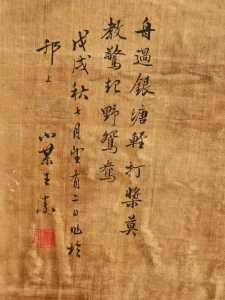 舟過銀塘輕打槳莫
教驚起野鴛鴦
戊戌秋七月望有二日作於
邗上 小某王素